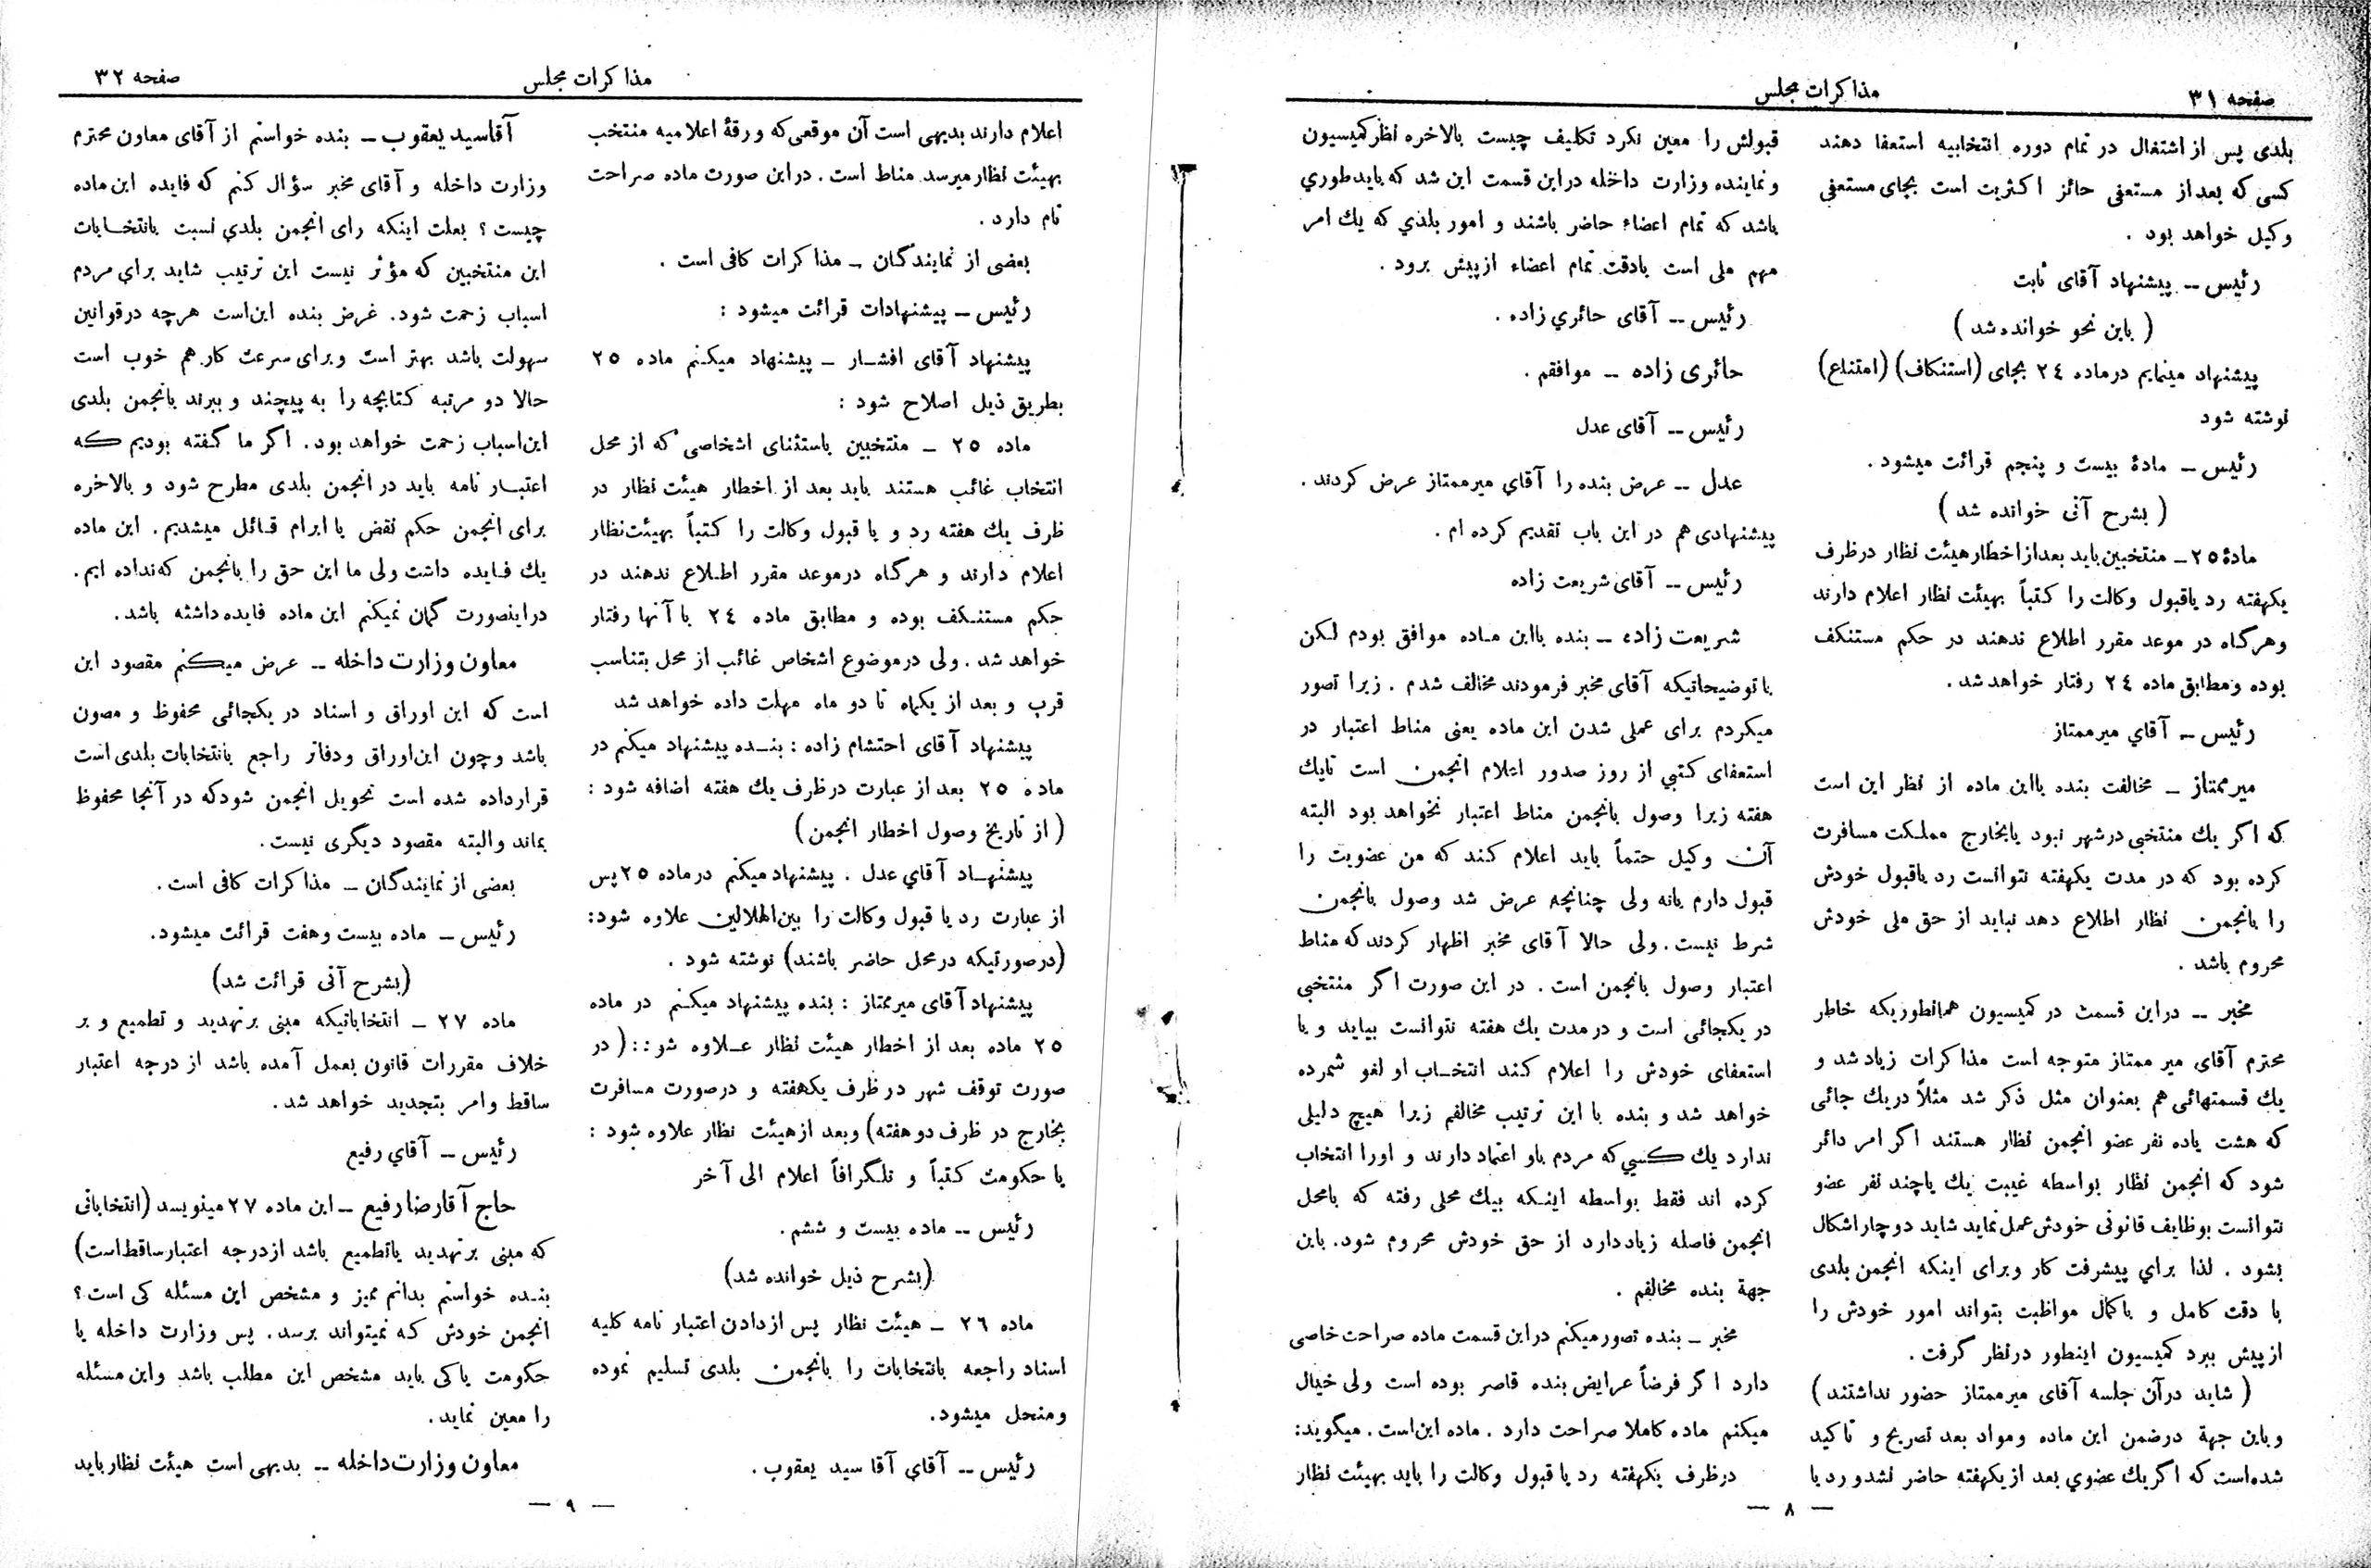 صفحه ۳۱
مذاکرات مجلس
بلدی پس از اشتغال در تمام دوره انتخابیه استعفا دهند
کسی که بعد از مستعفی حائز اکثریت است بجای مستعفی
وکیل خواهد بود .
رئیس -- پیشنهاد آقای ثابت
( باین نحو خوانده شد )
پیشنهاد مینمایم در ماده ۲٤ بجای (استنکاف) (امتناع)
نوشته شود
رئیس - مادهٔ بیست و پنجم قرائت میشود .
( بشرح آتی خوانده شد )
مادهٔ ۲٥ - منتخبین باید بعد از اخطار هیئت نظار در ظرف
یکهفته رد یا قبول وکالت را کتباً بهیئت نظار اعلام دارند
و هرگاه در موعد مقرر اطلاع ندهند در حکم مستنکف
بوده و مطابق ماده ۲٤ رفتار خواهد شد .
رئیس -- آقاي میر ممتاز
میر ممتاز - مخالفت بنده بااین ماده از نظر این است
که اگر یك منتخبی در شهر نبود یا بخارج مملکت مسافرت
کرده بود که در مدت یکهفته نتوانست رد یا قبول خودش
را بانجمن نظار اطلاع دهد نباید از حق ملی خودش
محروم باشد .
مخبر -- در این قسمت در کمیسیون همانطوریکه خاطر
محترم آقای میر ممتاز متوجه است مذاکرات زیاد شد و
یك قسمتهائی هم بعنوان مثل ذکر شد مثلاً در یك جائی
که هشت یا ده نفر عضو انجمن نظار هستند اگر امر دائر
شود که انجمن نظار بواسطه غیبت یك یا چند نفر عضو
نتوانست بوظایف قانونی خودش عمل نماید شاید دوچار اشکال
بشود . لذا براي پیشرفت کار و برای اینکه انجمن بلدی
با دقت کامل و با کمال مواظبت بتواند امور خودش را
از پیش ببرد کمیسیون اینطور در نظر گرفت .
( شاید در آن جلسه آقای میر ممتاز حضور نداشتند )
و باین جهة در ضمن این ماده و مواد بعد تصریح و تاکید
شده است که اگر یك عضوي بعد از یکهفته حاضر نشد و رد یا
قبولش را معین نکرد تکلیف چیست بالاخره نظر کمیسیون
و نماینده وزارت داخله در این قسمت این شد که باید طوري
باشد که تمام اعضاء حاضر باشند و امور بلدي که یك امر
مهم ملی است بادقت تمام اعضاء از پیش برود .
رئیس -- آقای حائري زاده .
حائری زاده -- موافقم .
رئیس -- آقای عدل
عدل -- عرض بنده را آقاي میر ممتاز عرض کردند .
پیشنهادی هم در این باب تقدیم کرده ام .
رئیس -- آقای شریعت زاده
شریعت زاده -- بنده بااین ماده موافق بودم لکن
با توضیحاتیکه آقای مخبر فرمودند مخالف شدم . زیرا تصور
میکردم برای عملی شدن این ماده یعنی مناط اعتبار در
استعفای کتبي از روز صدور اعلام انجمن است تا یك
هفته زیرا وصول بانجمن مناط اعتبار نخواهد بود البته
آن وکیل حتماً باید اعلام کند که من عضویت را
قبول دارم یا نه ولی چنانچه عرض شد وصول بانجمن
شرط نیست . ولی حالا آقای مخبر اظهار کردند که مناط
اعتبار وصول بانجمن است . در این صورت اگر منتخبی
در یکجائی است و در مدت یك هفته نتوانست بیاید و یا
استعفای خودش را اعلام کند انتخاب او لغو شمرده
خواهد شد و بنده با این ترتیب مخالفم زیرا هیچ دلیلی
ندارد یك کسي که مردم باو اعتماد دارند و اورا انتخاب
کرده اند فقط بواسطه اینکه بیك محلی رفته که بامحل
انجمن فاصله زیاد دارد از حق خودش محروم شود . باین
جهة بنده مخالفم .
مخبر - بنده تصور میکنم در این قسمت ماده صراحت خاصی
دارد اگر فرضاً عرایض بنده قاصر بوده است ولی خیال
میکنم ماده کاملا صراحت دارد . ماده این است . میگوید:
در ظرف یکهفته رد یا قبول وکالت را باید بهیئت نظار
— ۸ —
مذاکرات مجلس
صفحه ۳۲
اعلام دارند بدیهی است آن موقعی که ورقهٔ اعلامیه منتخب
بهیئت نظار میرسد مناط است . در این صورت ماده صراحت
تام دارد .
بعضی از نمایندگان - مذاکرات کافی است .
رئیس - پیشنهادات قرائت میشود :
پیشنهاد آقای افشار - پیشنهاد میکنم ماده ۲٥
بطریق ذیل اصلاح شود :
ماده ۲٥ - منتخبین باستثنای اشخاصی که از محل
انتخاب غائب هستند باید بعد از اخطار هیئت نظار در
ظرف یك هفته رد و یا قبول وکالت را کتباً بهیئت نظار
اعلام دارند و هرگاه در موعد مقرر اطلاع ندهند در
حکم مستنکف بوده و مطابق ماده ۲٤ با آنها رفتار
خواهد شد . ولی در موضوع اشخاص غائب از محل بتناسب
قرب و بعد از یکماه تا دو ماه مهلت داده خواهد شد
پیشنهاد آقای احتشام زاده : بنده پیشنهاد میکنم در
ماده ۲٥ بعد از عبارت در ظرف یك هفته اضافه شود :
( از تاریخ وصول اخطار انجمن )
پیشنهاد آقاي عدل . پیشنهاد میکنم در ماده ۲٥ پس
از عبارت رد یا قبول وکالت را بین الهلالین علاوه شود:
(در صورتیکه در محل حاضر باشند) نوشته شود .
پیشنهاد آقای میر ممتاز : بنده پیشنهاد میکنم در ماده
۲٥ ماده بعد از اخطار هیئت نظار علاوه شود: ( در
صورت توقف شهر در ظرف یکهفته و در صورت مسافرت
بخارج در ظرف دو هفته) و بعد از هیئت نظار علاوه شود :
یا حکومت کتباً و تلگرافاً اعلام الی آخر
رئیس -- ماده بیست و ششم .
(بشرح ذیل خوانده شد)
ماده ۲٦ - هیئت نظار پس از دادن اعتبار نامه کلیه
اسناد راجعه بانتخابات را بانجمن بلدی تسلیم نموده
و منحل میشود.
رئیس -- آقاي آقا سید یعقوب .
آقاسید یعقوب -- بنده خواستم از آقای معاون محترم
وزارت داخله و آقای مخبر سؤال کنم که فایده این ماده
چیست ؟ بعلت اینکه رای انجمن بلدي نسبت بانتخابات
این منتخبین که مؤثر نیست این ترتیب شاید براي مردم
اسباب زحمت شود. غرض بنده این است هرچه در قوانین
سهولت باشد بهتر است و برای سرعت کار هم خوب است
حالا دو مرتبه کتابچه را به پیچند و ببرند بانجمن بلدی
این اسباب زحمت خواهد بود. اگر ما گفته بودیم که
اعتبار نامه باید در انجمن بلدی مطرح شود و بالاخره
برای انجمن حکم نقض یا ابرام قائل میشدیم. این ماده
یك فایده داشت ولی ما این حق را بانجمن که نداده ایم.
در اینصورت گمان نمیکنم این ماده فایده داشته باشد.
معاون وزارت داخله -- عرض میکنم مقصود این
است که این اوراق و اسناد در یکجائی محفوظ و مصون
باشد و چون این اوراق و دفاتر راجع بانتخابات بلدی است
قرار داده شده است تحویل انجمن شود که در آنجا محفوظ
بماند و البته مقصود دیگری نیست.
بعضی از نمایندگان - مذاکرات کافی است.
رئیس - ماده بیست و هفت قرائت میشود.
(بشرح آتی قرائت شد)
ماده ۲۷ - انتخاباتیکه مبنی بر تهدید و تطمیع و بر
خلاف مقررات قانون بعمل آمده باشد از درجه اعتبار
ساقط و امر بتجدید خواهد شد.
رئیس -- آقاي رفیع
حاج آقا رضا رفیع -- این ماده ۲۷ مینویسد (انتخاباتی
که مبنی بر تهدید یا تطمیع باشد از درجه اعتبار ساقط است)
بنده خواستم بدانم ممیز و مشخص این مسئله کی است ؟
انجمن خودش که نمیتواند برسد. پس وزارت داخله یا
حکومت یا کی باید مشخص این مطلب باشد و این مسئله
را معین نماید.
معاون وزارت داخله -- بدیهی است هیئت نظار باید
— ۹ —